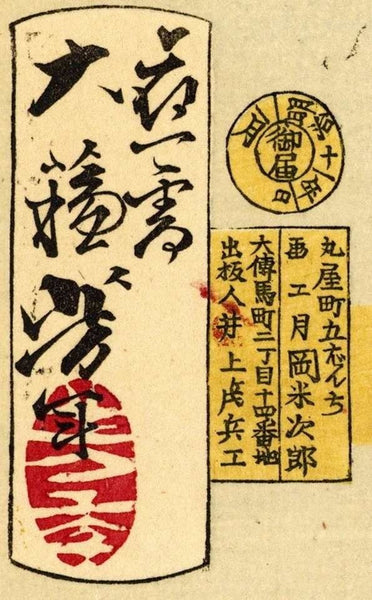 應需
大蘓芳年
御届
明治十一年
月
日
丸屋町五ばんち
画工月岡米次郎
大傳馬町二丁目十四番地
出板人井上茂兵エ